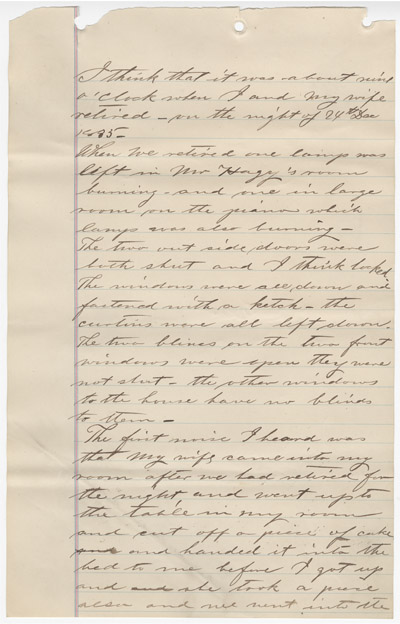 I think that it was about nine
o'clock when I and my wife
retired - on the night of 24th Dec
1885 -
When we retired one lamp was
left in Mr Hagy's room
burning - and one in large
room on the piano which
lamps was also burning -
The two out side doors were
both shut and I think locked
The windows were all down and
fastened with a ketch - the
curtins were all left down.
The two blines on the two front
windows were open they were
not shut - the other windows
to the house have no blinds
to them -
The first noise I heard was
that my wife came into my
room after we had retired for
the night and went up to
the table in my room
and cut off a piece of cake
and and handed it into the
bed to me before I got up
and and she took a piece
also and we went into the